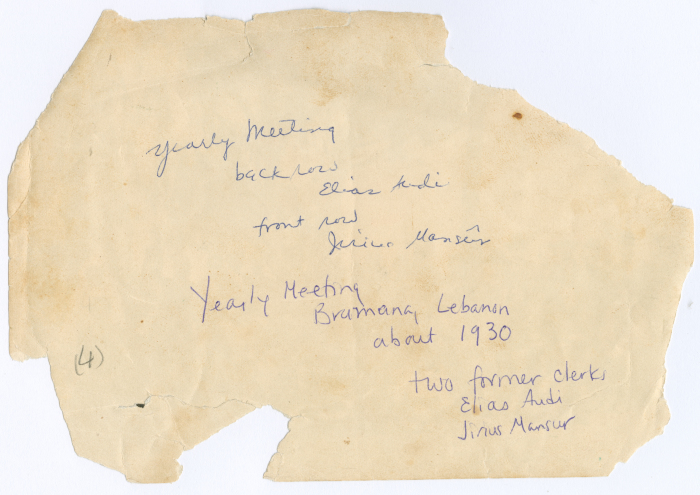 Yearly Meeting
back row
Elias Audi
front row
Jirius Mansûr
Yearly Meeting
Brumana, Lebanon
about 1930
(4)
two former clerks
Elias Audi
Jirius Mansur